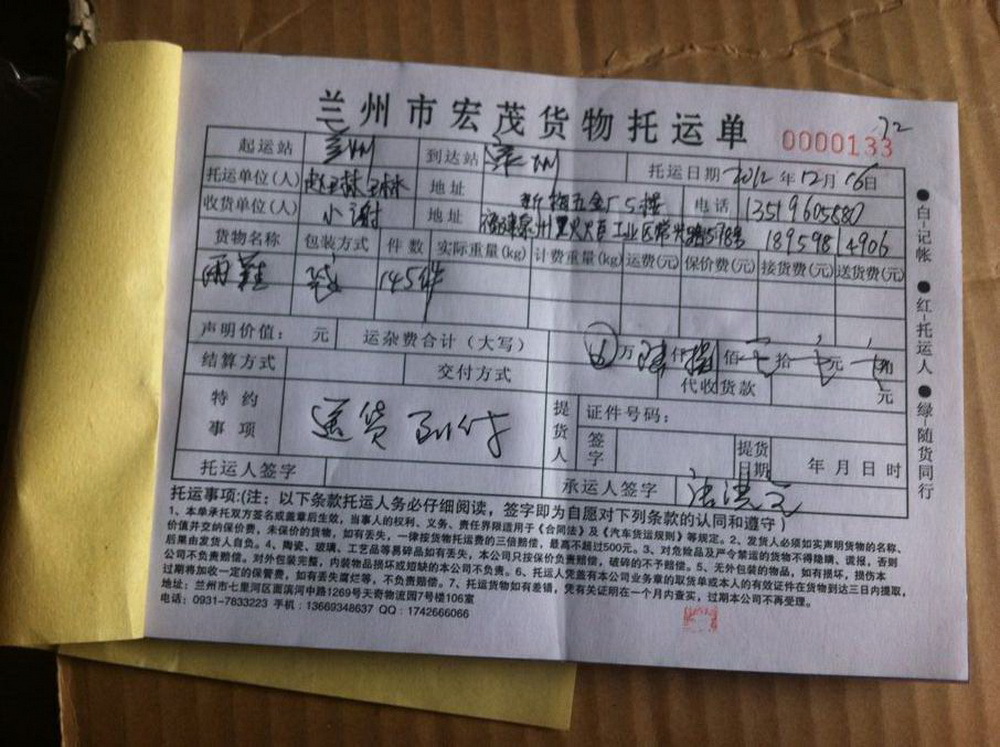 兰州市宏茂货物托运单
0000133
32
起运站 兰州 到达站 泉州 托运日期 2012 年 12 月 16 日
托运单位(人) 地址 电话 13519605880
收货单位(人) 小谢 地址 18959814906
货物名称 包装方式 件数 实际重量(kg) 计费重量(kg) 运费(元) 保价费(元) 接货费(元) 送货费(元)
雨鞋 袋 145件
声明价值: 元 运杂费合计(大写) 万 陆 仟 捌 佰 拾 元 角
结算方式 交付方式 代收货款 元
特约事项 送货 到付 提货人 证件号码:
签字 提货日期 年 月 日 时
托运人签字 承运人签字
托运事项:(注:以下条款托运人务必仔细阅读,签字即为自愿对下列条款的认同和遵守)
1、本单承托双方签名或盖章后生效,当事人的权利、义务、责任界限适用于《合同法》及《汽车货运规则》等规定。2、发货人必须如实声明货物的名称、
价值并交纳保价费,未保价的货物,如有丢失,一律按货物托运费的三倍赔偿,最高不超过500元。3、对危险品及严令禁运的货物不得隐瞒、谎报,否则
后果由发货人自负。4、陶瓷、玻璃、工艺品等易碎品如有丢失,本公司只按保价负责赔偿,破碎的不予赔偿。5、无外包装的物品,如有损坏,损伤本
公司不负责赔偿。对外包装完整,内装物品损坏或短缺的本公司不负责。6、托运人凭盖有本公司业务章的取货单或本人的有效证件在货物到达三日内提取,
过期将加收一定的保管费,如有丢失腐烂等,不负责赔偿。7、托运货物如有差错,凭有关证明在一个月内查实,过期本公司不再受理。
地址:兰州市七里河区面滨河中路1269号天奇物流园7号楼106室
电话:0931-7833223 手机:13669348637 QQ:1742666066
●白-记帐 ●红-托运人 ●绿-随货同行